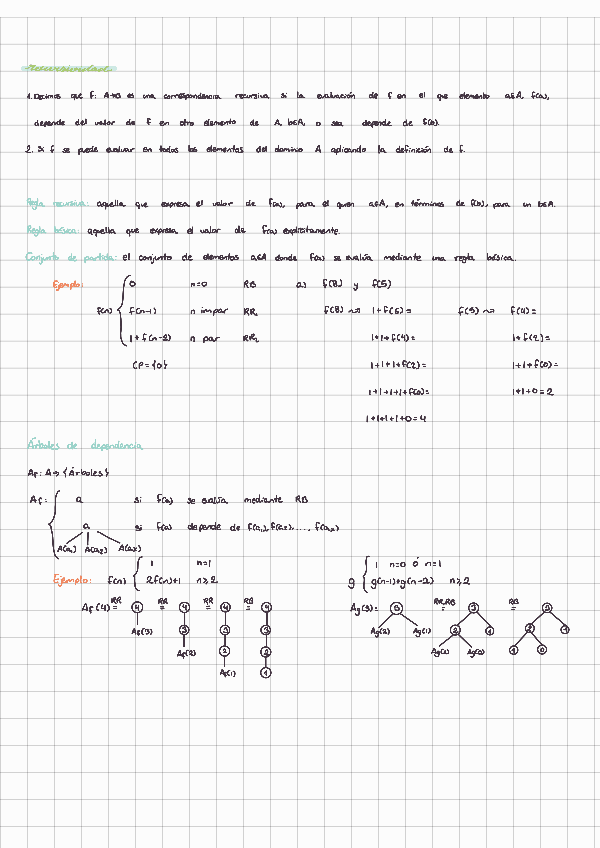 recursividad
1. Decimos que f: A→B es una correspondencia recursiva si la evaluación de f en el que elemento a∈A, f(a),
depende del valor de f en otro elemento de A, b∈A, o sea depende de f(b).
2. Si f se puede evaluar en todos los elementos del dominio A aplicando la definición de f.
Regla recursiva: aquella que expresa el valor de f(a), para el quien a∈A, en términos de f(b), para un b∈A.
Regla básica: aquella que expresa el valor de f(a) explícitamente.
Conjunto de partida: el conjunto de elementos a∈A donde f(a) se evalúa mediante una regla básica.
Ejemplo: 0 n=0 RB a) f(8) y f(5)
f(n) f(n-1) n impar RR₁ f(8) ⇝ 1+f(6)= f(5) ⇝ f(4)=
1+f(n-2) n par RR₂ 1+1+f(4)= 1+f(2)=
CP={0} 1+1+1+f(2)= 1+1+f(0)=
1+1+1+1+f(0)= 1+1+0=2
1+1+1+1+0=4
Árboles de dependencia
Af: A→{Árboles}
Af: a si f(a) se evalúa mediante RB
a si f(a) depende de f(a₁), f(a₂), ..., f(a₂)
A(a₁) A(a₂) A(a₂)
Ejemplo: f(n) 1 n=1
2f(n)+1 n≥2
g 1 n=0 ó n=1
g(n-1)+g(n-2) n≥2
Af(4) RR= 4 RR= 4 RR= 4 RB= 4
Af(3) 3 3 3
Af(2) 2 2
Af(1) 1
Ag(3)= 3 RR,RB= 3 RB= 3
Ag(2) Ag(1) 2 1 2 1
Ag(1) Ag(0) 1 0